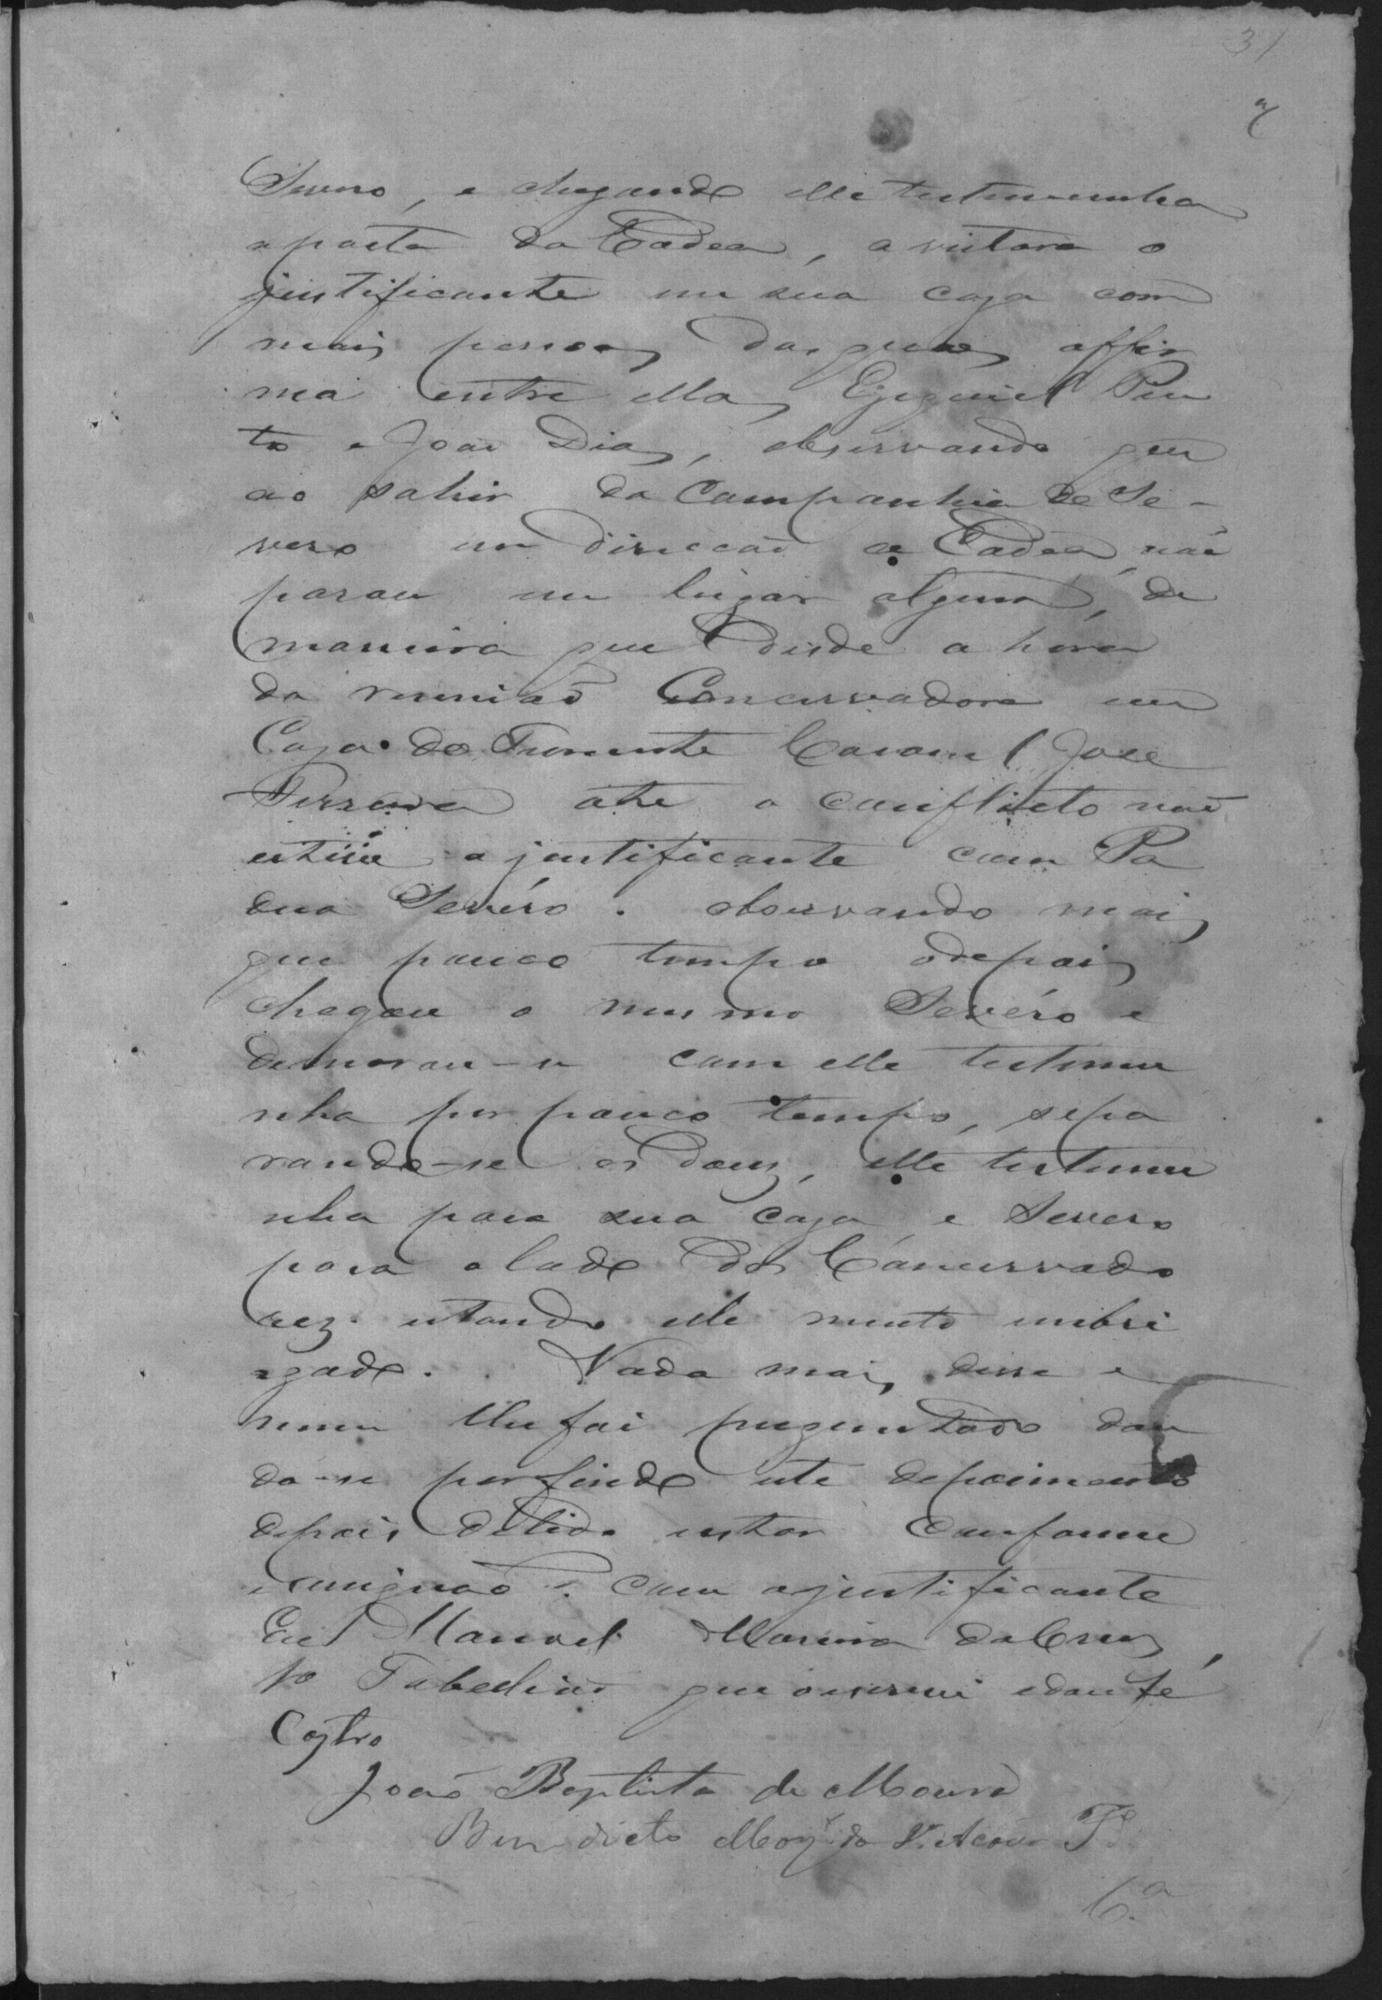 31
Severo, e chegando elle testemunha
a porta da Cadea, avistara o
justificante em sua caza com
mais pessoas, das quaes affir
ma entre ellas Ezequiel Pin
to e João Dias, observando que
ao sahir da Companhia de Se-
vero em direcção a Cadea, não
parou em lugar algum, de
maneira que desde a hora
da reunião Concervadora em
Caza do Tenente Coronel José
Ferreira athe o conflicto não
esteve o justificante com Pa
dua Sevéro. observando mais
que pouco tempo depois
chegou o mesmo Sevéro e
demorou-se com elle testemu
nha por pouco tempo, sepa
rando-se os dous, elle testemu
nha para sua caza e Severo
para o lado dos Concervado
rez. estando elle muito embri
agado. Nada mais disse e
nem lhe foi preguntado dan
do-se por findo este depoimento
depois de lido estar conforme
e assignão com o justificante
Eu Manoel Moreira da Cruz,
1º Tabelião que o escrevi e dou fé
Castro
João Baptista de Moura
Benedicto
6.ª